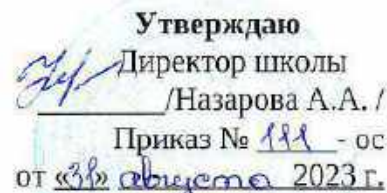 Утверждаю
Директор школы
/Назарова А.А. /
Приказ № 111 - ос
от «31» августа 2023 г.